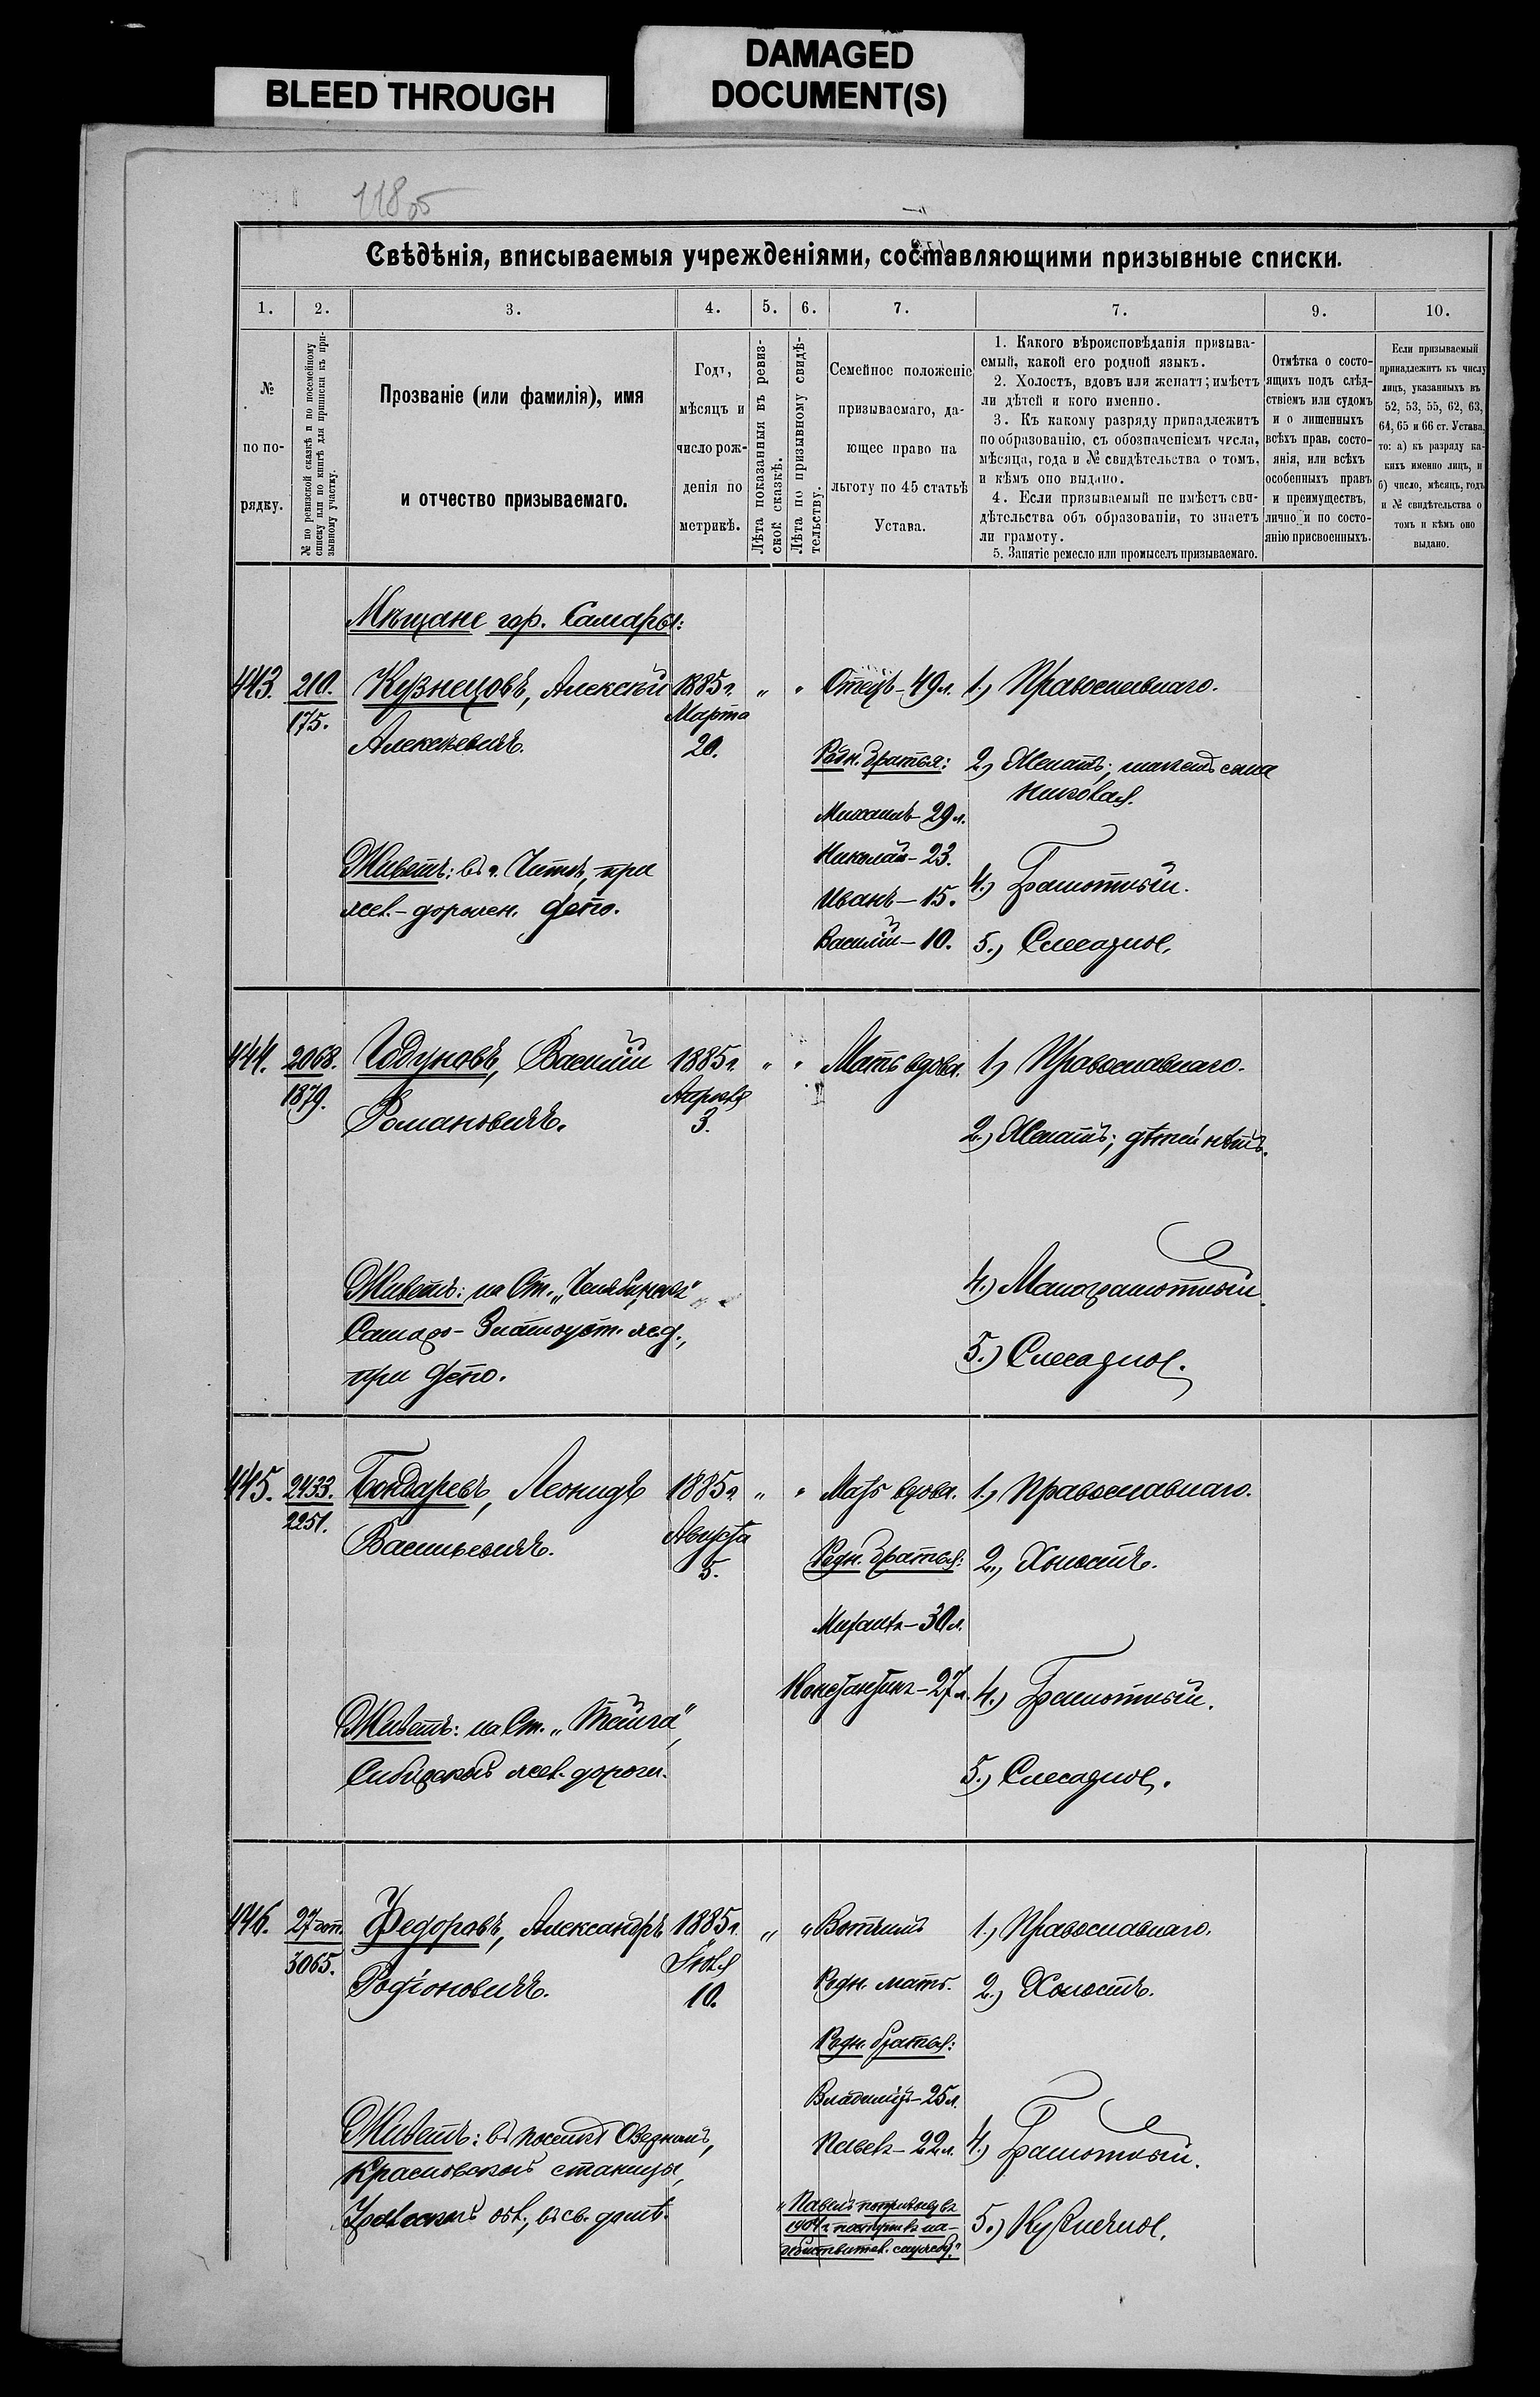 BLEED THROUGH
DAMAGED
DOCUMENT(S)
118 об
Свѣдѣнія, вписываемыя учрежденіями, составляющими призывные списки.
1. 2. 3. 4. 5. 6. 7. 7. 9. 10.
№
по по-
рядку.
№ по ревизской сказкѣ и по посемейному
списку или по книгѣ для приписки къ при-
зывному участку.
Прозваніе (или фамилія), имя
и отчество призываемаго.
Годъ,
мѣсяцъ и
число рож-
денія по
метрикѣ.
Лѣта показанныя въ ревиз-
ской сказкѣ.
Лѣта по призывному свидѣ-
тельству.
Семейное положеніе
призываемаго, да-
ющее право на
льготу по 45 статьѣ
Устава.
1. Какого вѣроисповѣданія призыва-
емый, какой его родной языкъ.
2. Холостъ, вдовъ или женатъ; имѣетъ
ли дѣтей и кого именно.
3. Къ какому разряду принадлежитъ
по образованію, съ обозначеніемъ числа,
мѣсяца, года и № свидѣтельства о томъ,
и кѣмъ оно выдано.
4. Если призываемый не имѣетъ сви-
дѣтельства объ образованіи, то знаетъ
ли грамоту.
5. Занятіе ремесло или промыселъ призываемаго.
Отмѣтка о состо-
ящихъ подъ слѣд-
ствіемъ или судомъ
и о лишенныхъ
всѣхъ прав, состо-
янія, или всѣхъ
особенныхъ правъ
и преимуществъ,
лично и по состо-
янію присвоенныхъ.
Если призываемый
принадлежитъ къ числу
лицъ, указанныхъ въ
52, 53, 55, 62, 63,
64, 65 и 66 ст. Устава,
то: а) къ разряду ка-
кихъ именно лицъ, и
б) число, мѣсяцъ, годъ
и № свидѣтельства о
томъ и кѣмъ оно
выдано.
Мѣщане гор. Самары:
443. 210. Кузнецовъ, Алексѣй 1885 г. " " Отецъ – 49 л. 1.) Православнаго.
175. Алексѣевичъ. Марта
20.
Родн. братья: 2.) Женатъ; имѣетъ сына
Николая.
Михаилъ – 29 л.
Живетъ: въ г. Читѣ, при Николай – 23.
жел.-дорожн. депо. Иванъ – 15. 4.) Грамотный.
Василій – 10. 5.) Слесарное.
444. 2068. Годуновъ, Василій 1885 г. " " Мать вдова. 1.) Православнаго.
1879. Романовичъ. Апрѣля
3. 2.) Женатъ; дѣтей нѣтъ.
Живетъ: на Ст. „Челябинскъ" 4.) Малограмотный.
Самаро-Златоуст. ж.д.,
при депо. 5.) Слесарное.
445. 2433. Бондаревъ, Леонидъ 1885 г. " " Мать вдова. 1.) Православнаго.
2251. Васильевичъ. Августа
5. Родн. братья: 2.) Холостъ.
Михаилъ – 30 л.
Константинъ – 27 л. 4.) Грамотный.
Живетъ: на Ст. „Тайга",
Сибирской жел. дороги. 5.) Слесарное.
446. 27 доп. Федоровъ, Александръ 1885 г. " " Вотчимъ 1.) Православнаго.
3065. Родіоновичъ. Іюля
10. Родн. мать. 2.) Холостъ.
Родн. братья:
Владиміръ – 25 л.
Живетъ: въ поселкѣ Озерномъ, Павелъ – 22 л. 4.) Грамотный.
Красновской станицы,
Уральской обл., въ св. домѣ.
„Павелъ по призыву въ
1904 г. поступилъ на
дѣйствител. службу." 5.) Кузнечное.